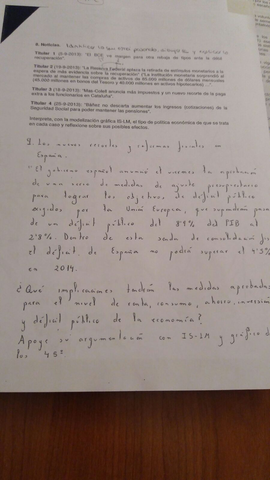 8. Noticias
Titular 1 (5-9-2013): "El BCE ve margen para otra rebaja de tipos ante la débil
recuperación".
Titular 2 (18-9-2013): "La Reserva Federal aplaza la retirada de estímulos monetarios a la
espera de más evidencia sobre la recuperación" ("La institución monetaria sorprendió al
mercado al mantener las compras de activos de 85.000 millones de dólares mensuales
(45.000 millones en bonos del Tesoro y 40.000 millones de activos hipotecarios").
Titular 3 (18-9-2013): "Mas-Colell anuncia más impuestos y un nuevo recorte de la paga
extra a los funcionarios en Cataluña".
Titular 4 (20-9-2013): "Báñez no descarta aumentar los ingresos (cotizaciones) de la
Seguridad Social para poder mantener las pensiones".
Interprete, con la modelización gráfica IS-LM, el tipo de política económica de que se trata
en cada caso y reflexione sobre sus posibles efectos.
9. Los nuevos recortes y reformas fiscales en
España.
"El gobierno español anunció el viernes la aprobación
de una serie de medidas de ajuste presupuestario
para lograr los objetivos de déficit público
exigidos por la Unión Europea, que supondrían pasar
de un déficit público del 8'9% del PIB al
2'8%. Dentro de esta senda de consolidación fiscal
el déficit de España no podrá superar el
en 2014.
¿Qué implicaciones tendrán las medidas aprobadas
para el nivel de renta, consumo, ahorro, inversión
y déficit público de la economía?
Apoye su argumentación con IS-LM y gráfico de
los 45º